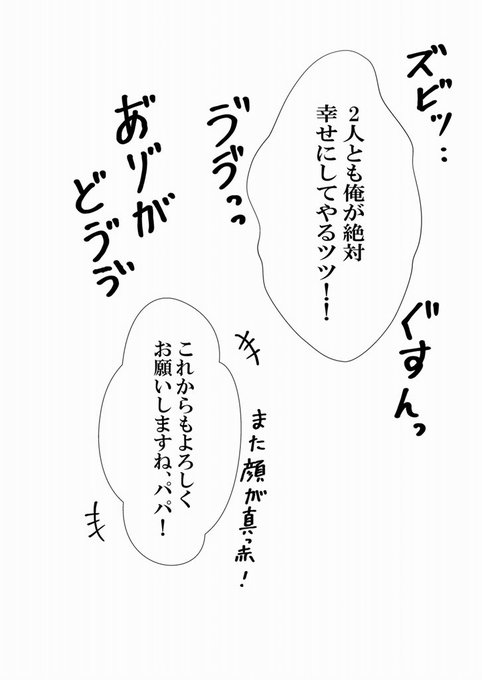 ズビッ‥
2人とも俺が絶対
幸せにしてやるツツ！！
ぐすんっ
ゔゔっっ
あ゙ゾが
どゔゔ
これからもよろしく
お願いしますね、パパ！
また顔が真っ赤！